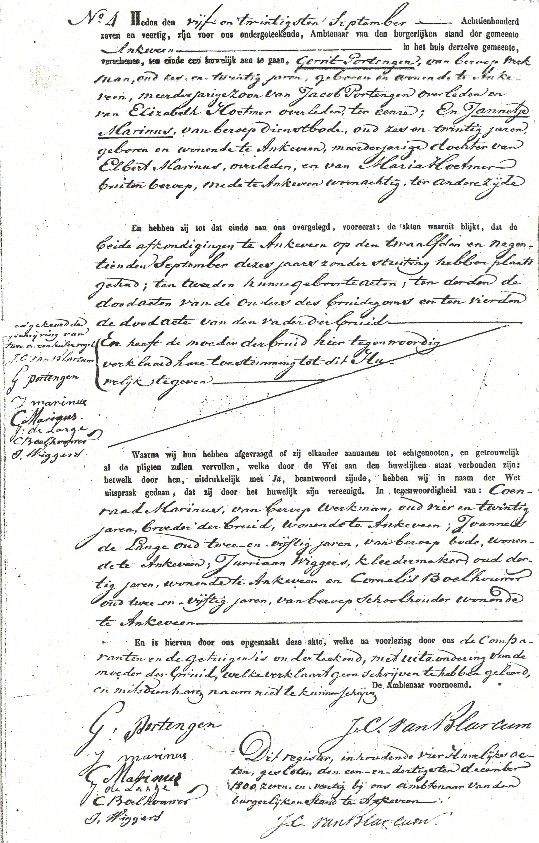 No 4 Heden den vijf en twintigsten September Achttienhonderd
zeven en veertig, zijn voor ons ondergeteekende, Ambtenaar van den burgerlijken stand der gemeente
Ankeveen in het huis derzelve gemeente,
verschenen, ten einde een huwelijk aan te gaan, Gerrit Portengen, van beroep werk
man, oud zes en twintig jaren, geboren en wonende te Anke-
veen, meerderjarige zoon van Jacob Portengen overleden en
van Elizabeth Hoetmer overleden, ter eenre; En Jannetje
Marinus, van beroep Dienstbode, oud zes en twintig jaren,
geboren en wonende te Ankeveen, meerderjarige dochter van
Elbert Marinus, overleden, en van Maria Hoetmer
buiten beroep, mede te Ankeveen woonachtig, ter andere zijde
En hebben zij tot dat einde aan ons overgelegd, vooreerst: de akten waaruit blijkt, dat de
beide afkondigingen te Ankeveen op den twaalfden en negen-
tienden September dezes jaars zonder stuiting hebben plaats
gehad; ten tweeden hunne geboorteacten; ten derden de
doodacten van de Ouders des bruidegoms en ten vierden
de doodacte van den vader der bruid
En heeft de moeder der bruid hier tegenwoordig
verklaard hare toestemming tot dit Hu
welijk te geven
J.C. van Blarcum
G Portengen
J marinus
C Marinus
J. de Lange
C Boelhouwer
J. Wiggers
Waarna wij hun hebben afgevraagd of zij elkander aannamen tot echtgenooten, en getrouwelijk
al de pligten zullen vervullen, welke door de Wet aan den huwelijken staat verbonden zijn:
hetwelk door hen, uitdrukkelijk met Ja, beantwoord zijnde, hebben wij in naam der Wet
uitspraak gedaan, dat zij door het huwelijk zijn vereenigd. In tegenwoordigheid van: Coen-
raad Marinus, van beroep Werkman, oud vier en twintig
jaren, broeder der bruid, wonende te Ankeveen; Joannes
de Lange oud twee en vijftig jaren, van beroep bode, wonen-
de te Ankeveen; Jurriaan Wiggers, kleedermaker oud der-
tig jaren, wonende te Ankeveen en Cornelis Boelhouwer
oud twee en vijftig jaren, van beroep Schoolhouder wonende
te Ankeveen
En is hiervan door ons opgemaakt deze akte, welke na voorlezing door ons de Compa-
ranten en de getuigen is onderteekend, met uitzondering van de
moeder der bruid, welke verklaart geen schrijven te hebben geleerd,
en mitsdien haren naam niet te kunnen schrijven
De Ambtenaar voornoemd.
G. Portengen
J.C. van Blarcum
J marinus
C Marinus
J de Lange
C Boelhouwer
J. Wiggers
Dit register, inhoudende vier Huwelijks ac-
ten, gesloten den een en dertigsten december
1800 zeven en veertig bij ons ambtenaar van den
burgerlijken Stand te Ankeveen
J.C. van Blarcum